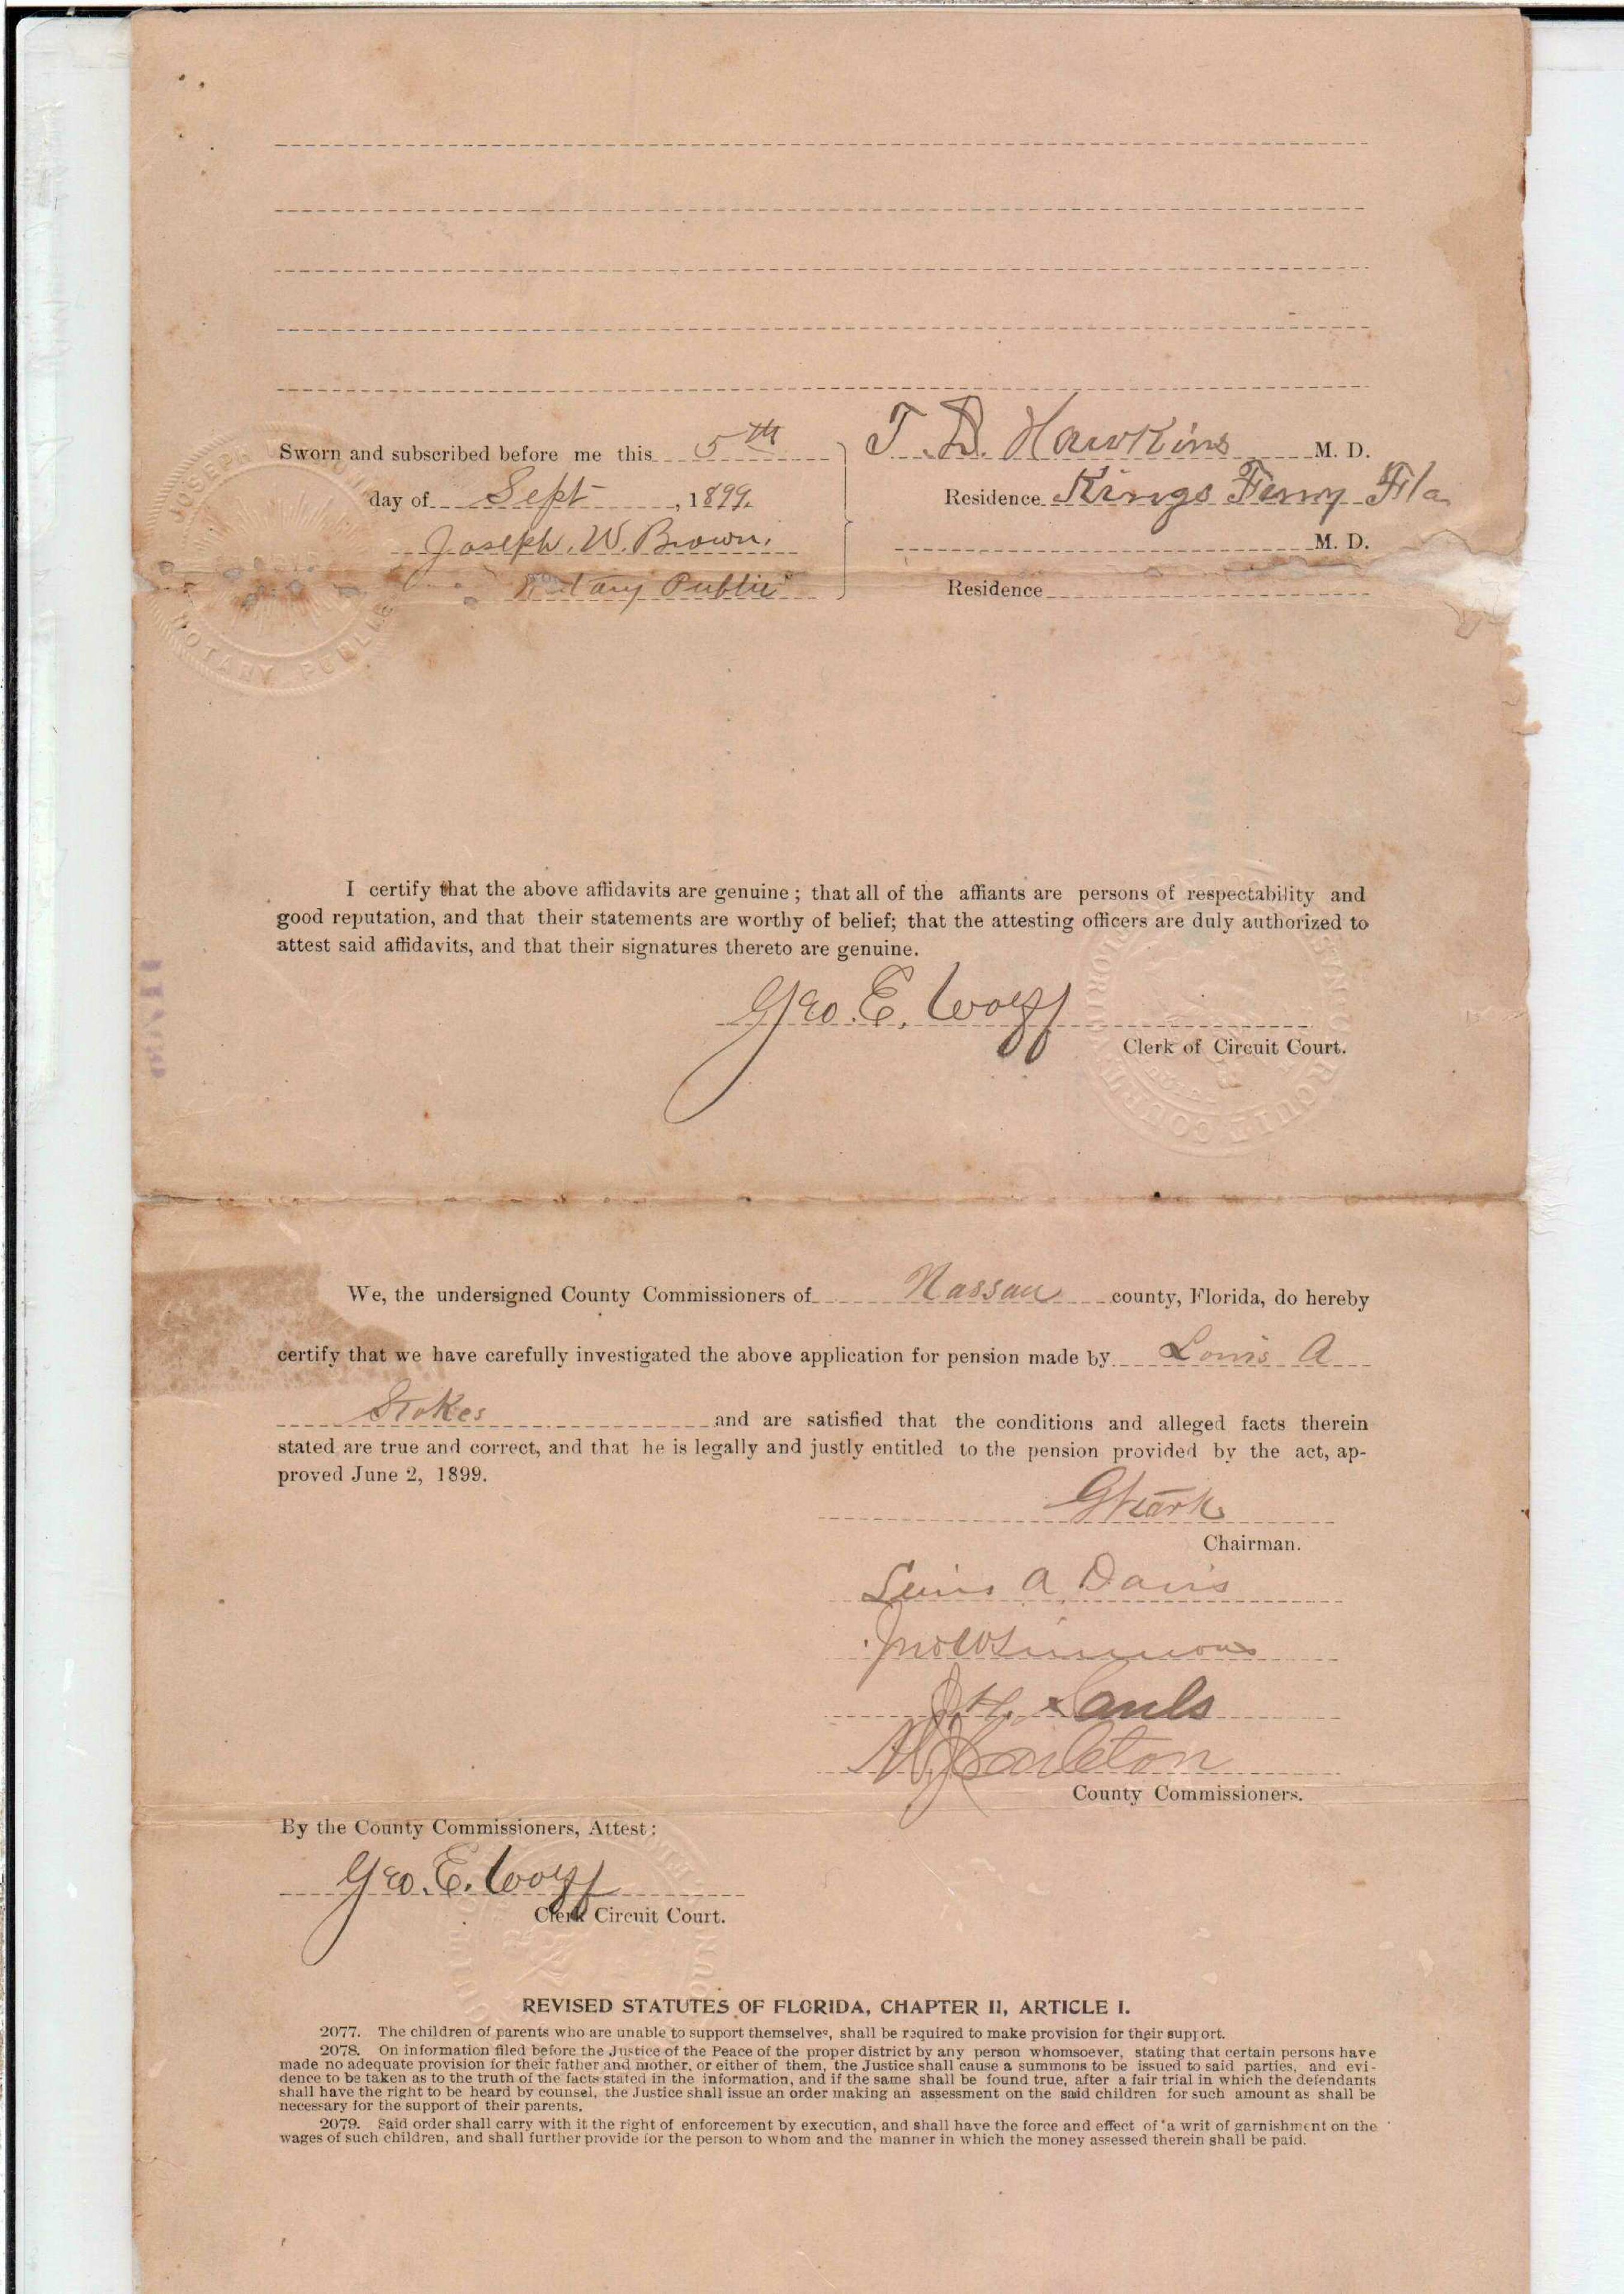 Sworn and subscribed before me this 5th
day of Sept, 1899.
Joseph. W. Brown.
Notary Public
T. D. Hawkins M. D.
Residence Kings Ferry Fla
M. D.
Residence
JOSEPH
NOTARY PUBLIC
I certify that the above affidavits are genuine; that all of the affiants are persons of respectability and
good reputation, and that their statements are worthy of belief; that the attesting officers are duly authorized to
attest said affidavits, and that their signatures thereto are genuine.
Geo. E. Wolff
Clerk of Circuit Court.
CIRCUIT COURT
We, the undersigned County Commissioners of Nassau county, Florida, do hereby
certify that we have carefully investigated the above application for pension made by Louis A
Stokes and are satisfied that the conditions and alleged facts therein
stated are true and correct, and that he is legally and justly entitled to the pension provided by the act, ap-
proved June 2, 1899.
Chairman.
A Davis
J H. Sauls
County Commissioners.
By the County Commissioners, Attest:
Geo. E. Wolff
Clerk Circuit Court.
REVISED STATUTES OF FLORIDA, CHAPTER II, ARTICLE I.
2077. The children of parents who are unable to support themselves, shall be required to make provision for their support.
2078. On information filed before the Justice of the Peace of the proper district by any person whomsoever, stating that certain persons have
made no adequate provision for their father and mother, or either of them, the Justice shall cause a summons to be issued to said parties, and evi-
dence to be taken as to the truth of the facts stated in the information, and if the same shall be found true, after a fair trial in which the defendants
shall have the right to be heard by counsel, the Justice shall issue an order making an assessment on the said children for such amount as shall be
necessary for the support of their parents.
2079. Said order shall carry with it the right of enforcement by execution, and shall have the force and effect of a writ of garnishment on the
wages of such children, and shall further provide for the person to whom and the manner in which the money assessed therein shall be paid.